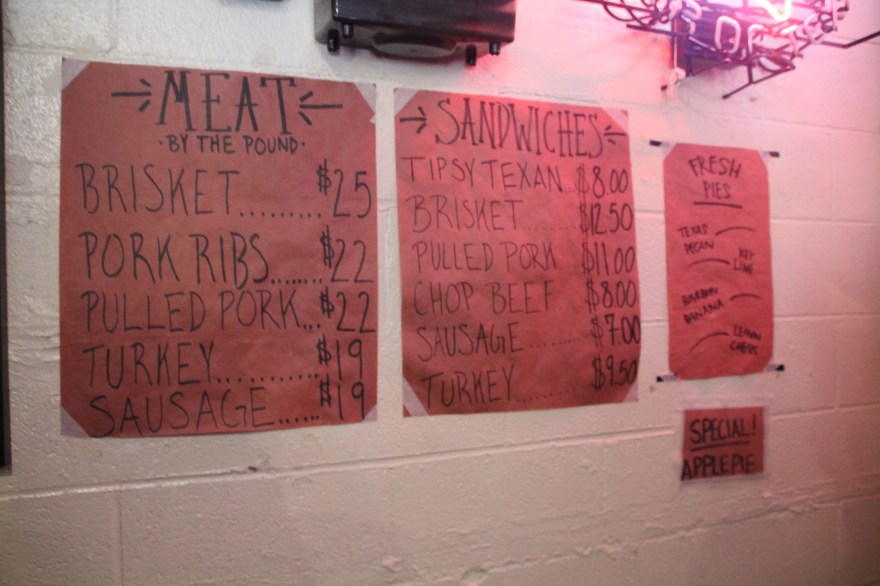 MEAT
·BY THE POUND·
BRISKET......... $25
PORK RIBS...... $22
PULLED PORK... $22
TURKEY.......... $19
SAUSAGE...... $19
SANDWICHES
TIPSY TEXAN.. $8.00
BRISKET....... $12.50
PULLED PORK... $11.00
CHOP BEEF... $8.00
SAUSAGE....... $7.00
TURKEY......... $9.50
FRESH
PIES
TEXAS
PECAN
KEY
LIME
BOURBON
BANANA
LEMON
CHESS
SPECIAL!
APPLE PIE